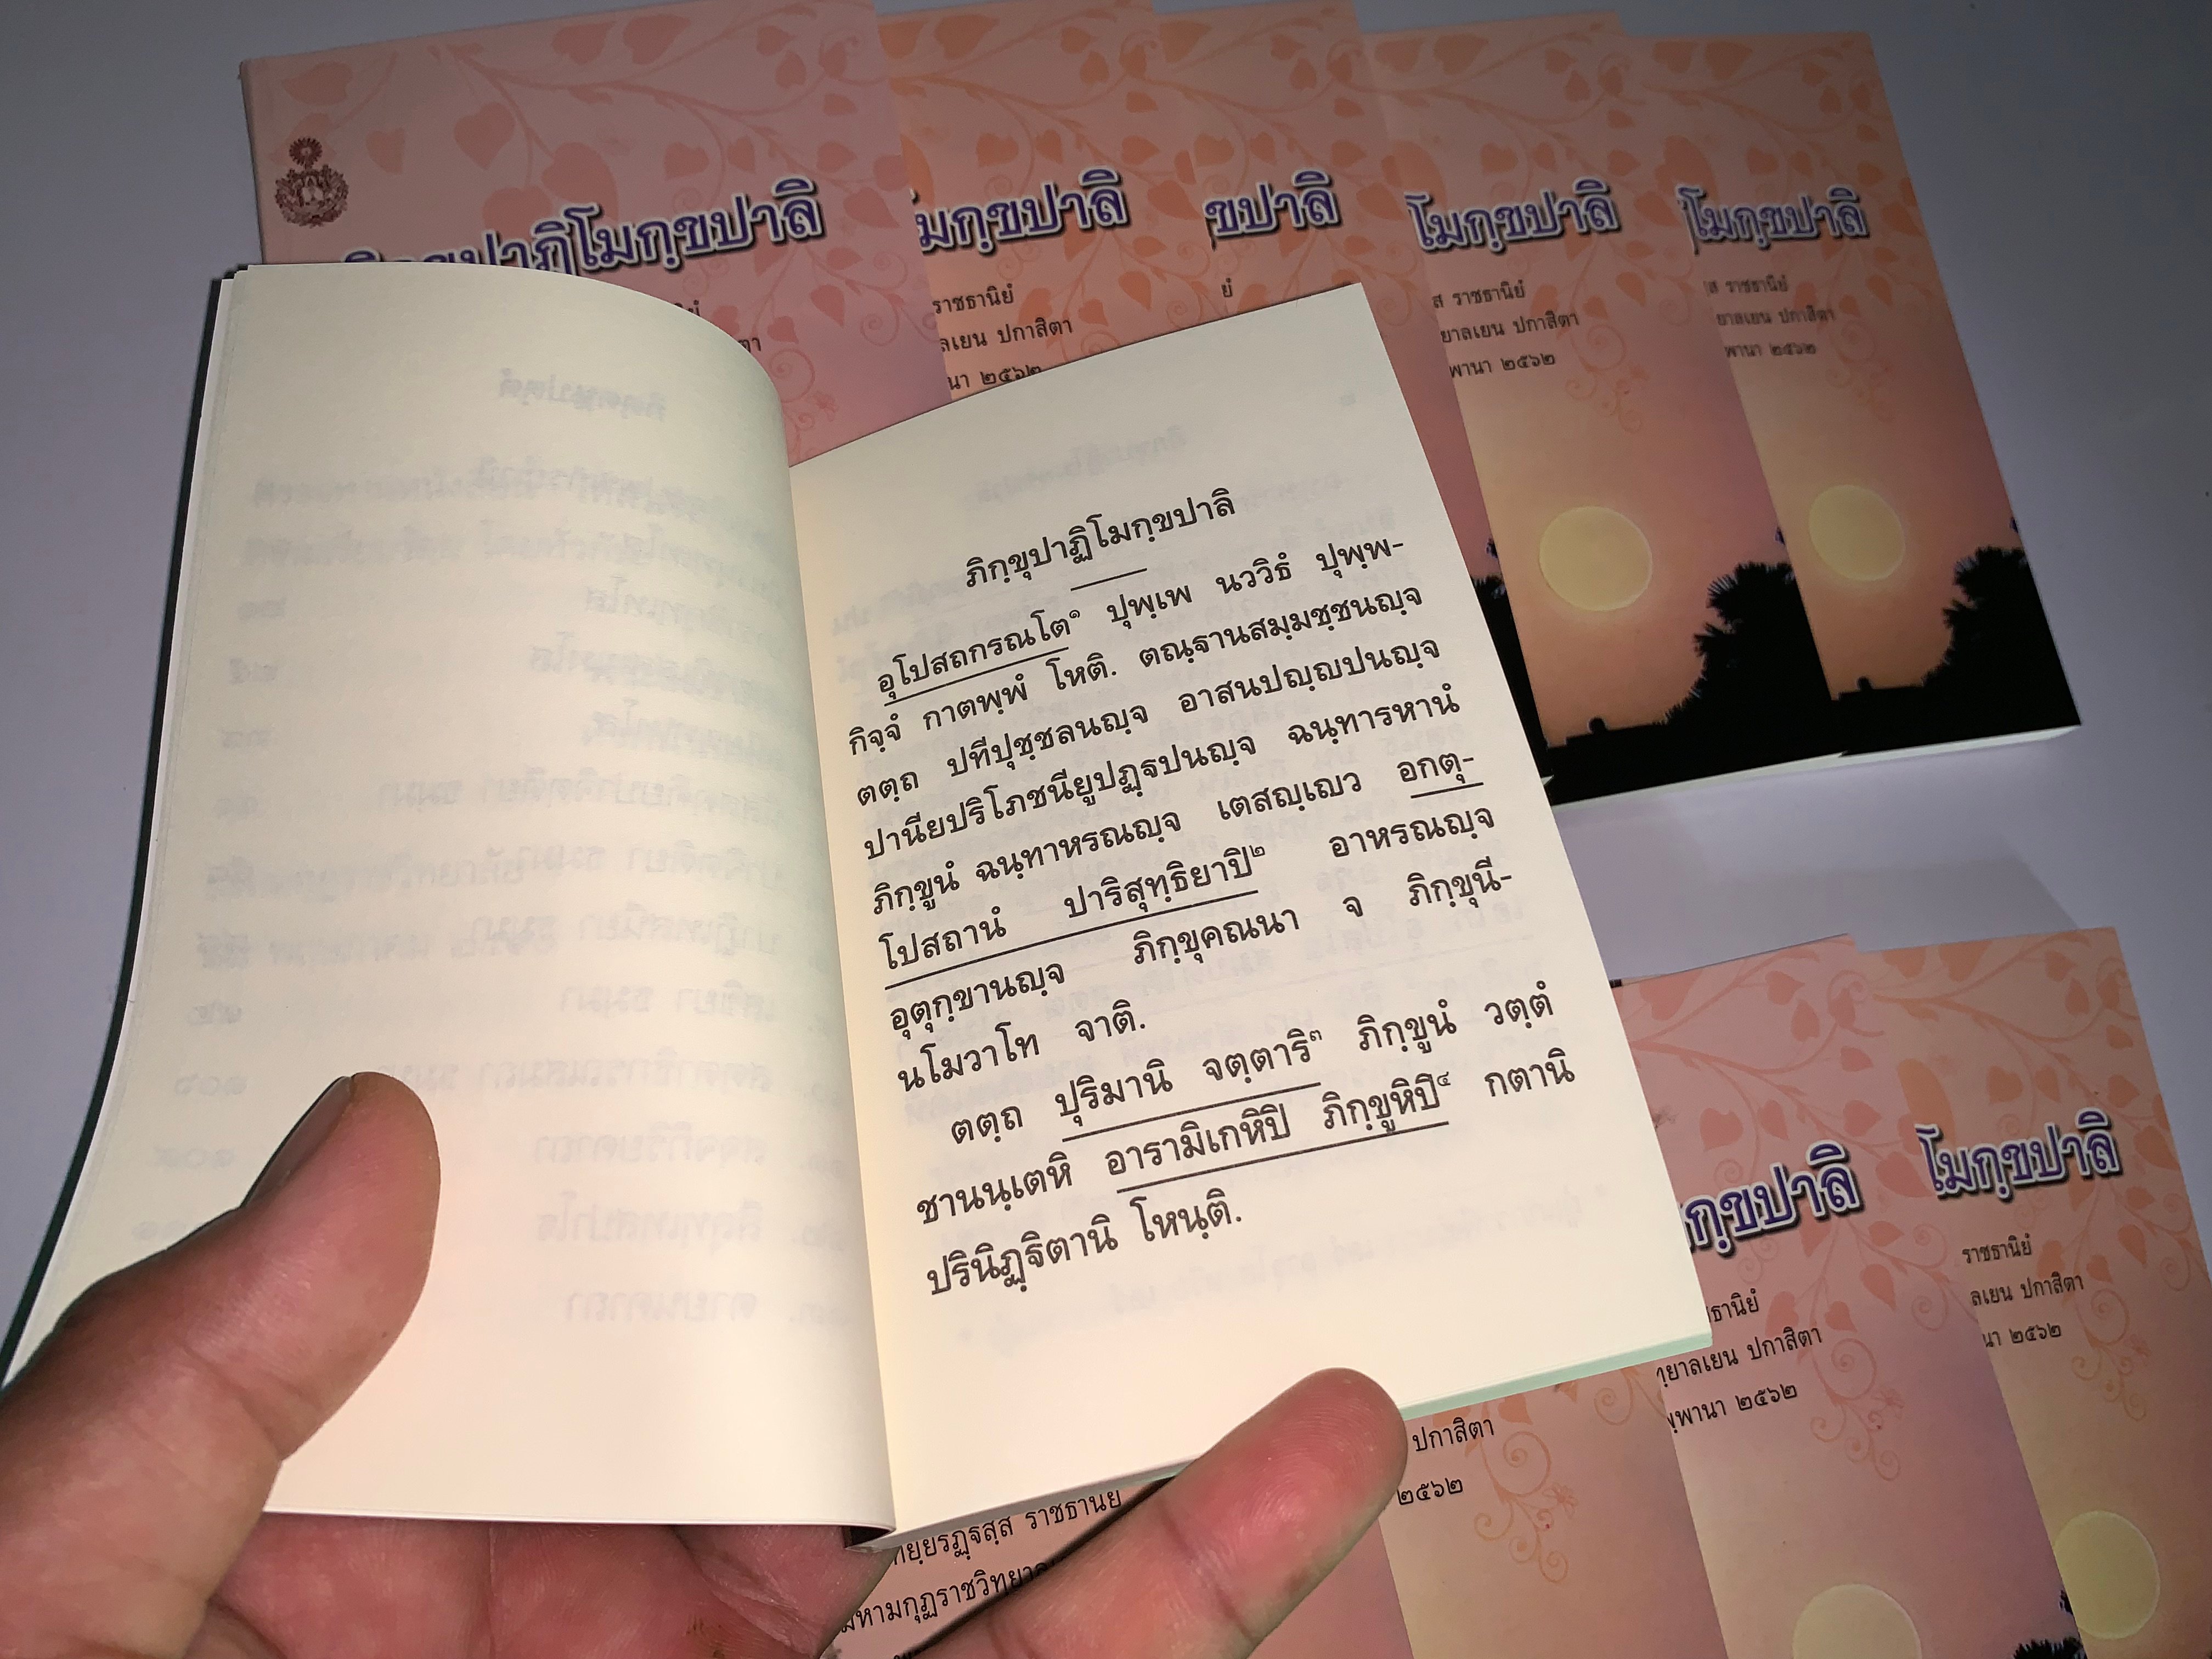 ปาฏิโมกฺขปาลิ
โมกฺขปาลิ
ขปาลิ
โมกฺขปาลิ
โมกฺขปาลิ
ราชธานิยํ
ลเยน ปกาสิตา
นา ๒๕๖๒
ยํ
ส ราชธานิยํ
ยาลเยน ปกาสิตา
พานา ๒๕๖๒
ส ราชธานิยํ
ยาลเยน ปกาสิตา
พานา ๒๕๖๒
ภิกฺขุปาฏิโมกฺขปาลิ
อุโปสถกรณโต๑ ปุพฺเพ นววิธํ ปุพฺพ-
กิจฺจํ กาตพฺพํ โหติ. ตณฺฐานสมฺมชฺชนญฺจ
ตตฺถ ปทีปุชฺชลนญฺจ อาสนปญฺญปนญฺจ
ปานียปริโภชนียูปฏฺฐปนญฺจ ฉนฺทารหานํ
ภิกฺขูนํ ฉนฺทาหรณญฺจ เตสญฺเญว อกตุ-
โปสถานํ ปาริสุทฺธิยาปิ๒ อาหรณญฺจ
อุตุกฺขานญฺจ ภิกฺขุคณนา จ ภิกฺขุนี-
นโมวาโท จาติ.
ตตฺถ ปุริมานิ จตฺตาริ๓ ภิกฺขูนํ วตฺตํ
ชานนฺเตหิ อารามิเกหิปิ ภิกฺขูหิปิ๔ กตานิ
ปรินิฏฺฐิตานิ โหนฺติ.
กฺขปาลิ
โมกฺขปาลิ
ราชธานิยํ
ลเยน ปกาสิตา
นา ๒๕๖๒
ธานิยํ
ยาลเยน ปกาสิตา
พานา ๒๕๖๒
ปกาสิตา
๒๕๖๒
ยฺยรฏฺฐสฺส ราชธานิยํ
มหามกุฏราชวิทฺยาล